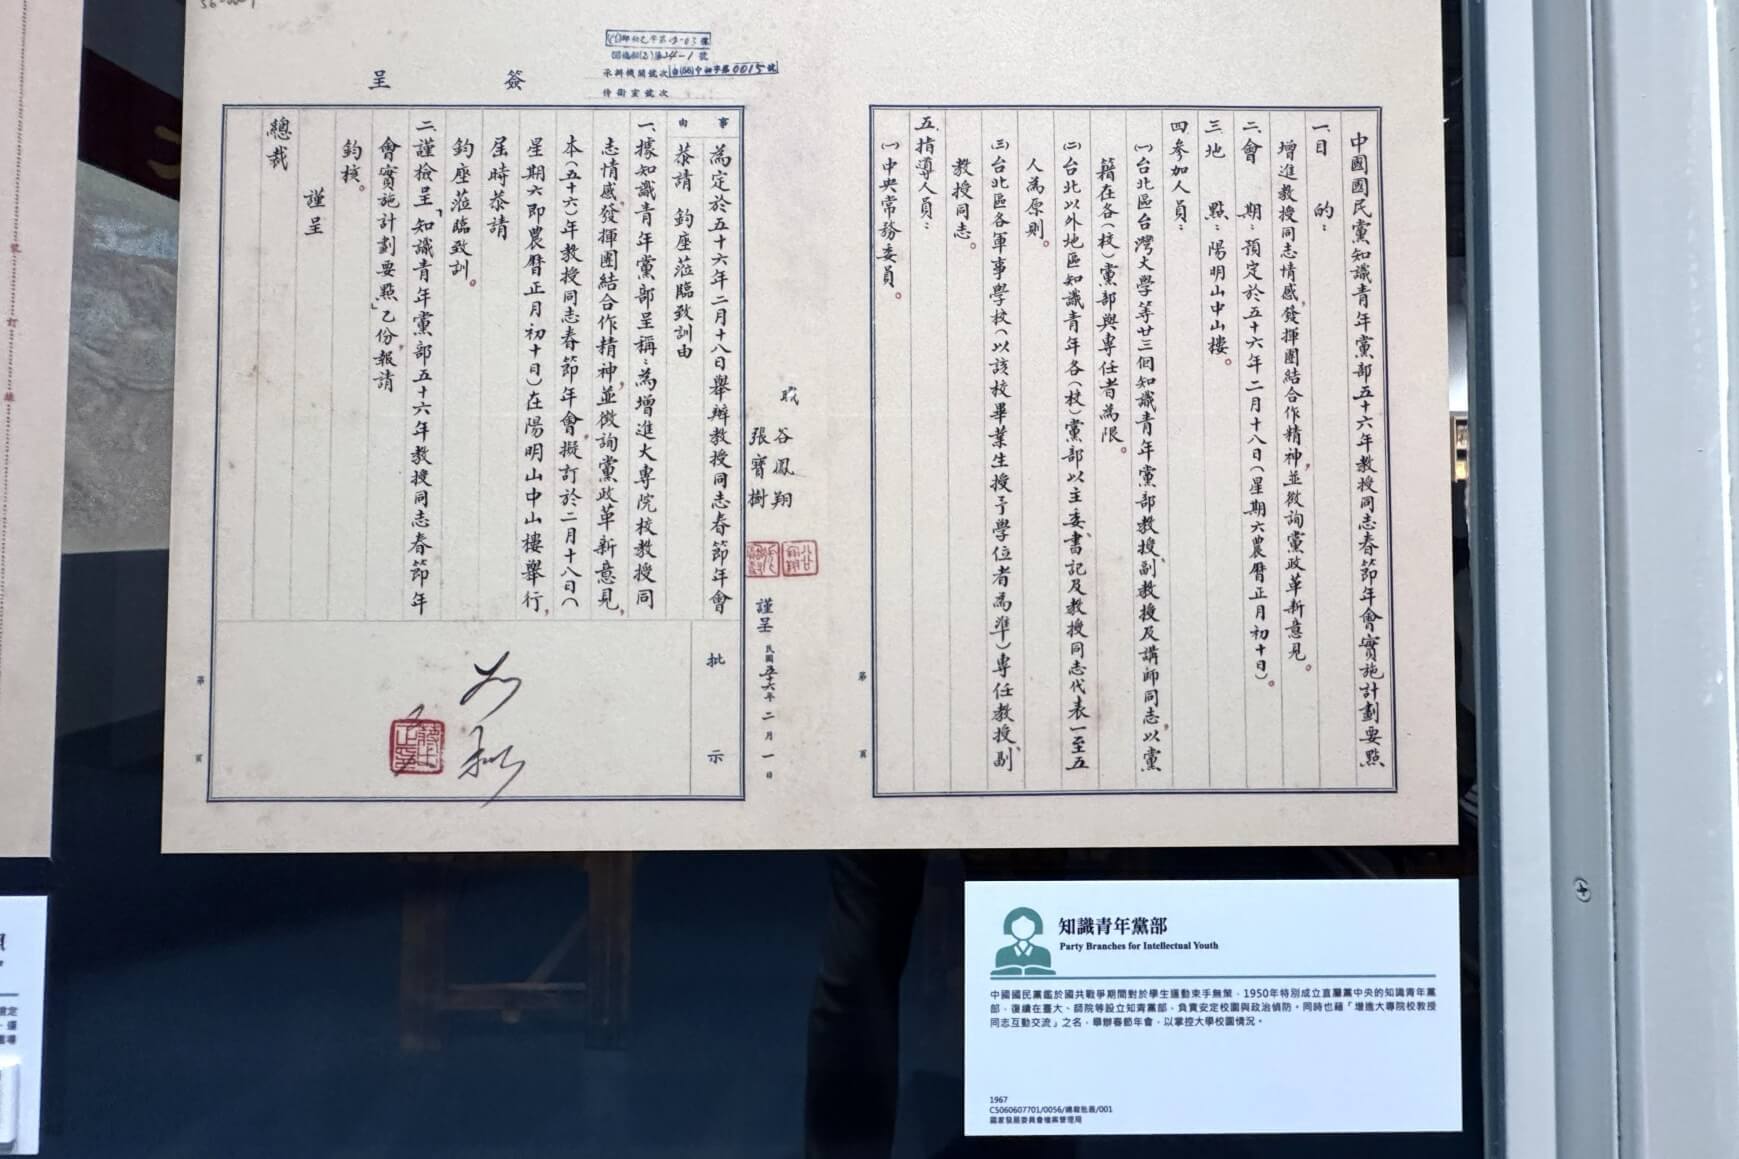 簽呈
承辦機關號次 台(56)中秘字第0015號
侍衛室號次
事由
為定於五十六年二月十八日舉辦教授同志春節年會
恭請 鈞座蒞臨致訓由
一、據知識青年黨部呈稱：為增進大專院校教授同
志情感，發揮團結合作精神，並徵詢黨政革新意見，
本（五十六）年教授同志春節年會，擬訂於二月十八日（
星期六即農曆正月初十日）在陽明山中山樓舉行，
屆時恭請
鈞座蒞臨致訓。
二、謹檢呈「知識青年黨部五十六年教授同志春節年
會實施計劃要點」乙份，報請
鈞核。
謹呈
總裁
批示
如擬
職
谷鳳翔
張寶樹
謹呈 民國五十六年二月一日
第 頁
中國國民黨知識青年黨部五十六年教授同志春節年會實施計劃要點
一、目 的：
增進教授同志情感，發揮團結合作精神，並徵詢黨政革新意見。
二、會 期：預定於五十六年二月十八日（星期六農曆正月初十日）。
三、地 點：陽明山中山樓。
四、參加人員：
㈠台北區台灣大學等廿三個知識青年黨部教授、副教授及講師同志，以黨
籍在各（校）黨部與專任者為限。
㈡台北以外地區知識青年各（校）黨部以主委、書記及教授同志代表一至五
人為原則。
㈢台北區各軍事學校（以該校畢業生授予學位者為準）專任教授、副
教授同志。
五、指導人員：
㈠中央常務委員。
第 頁
知識青年黨部
Party Branches for Intellectual Youth
中國國民黨鑑於國共戰爭期間對於學生運動束手無策，1950年特別成立直屬黨中央的知識青年黨
部，復續在臺大、師院等設立知青黨部，負責安定校園與政治偵防。同時也藉「增進大專院校教授
同志互動交流」之名，舉辦春節年會，以掌控大學校園情況。
1967
C5060607701/0056/總裁批簽/001
國家發展委員會檔案管理局